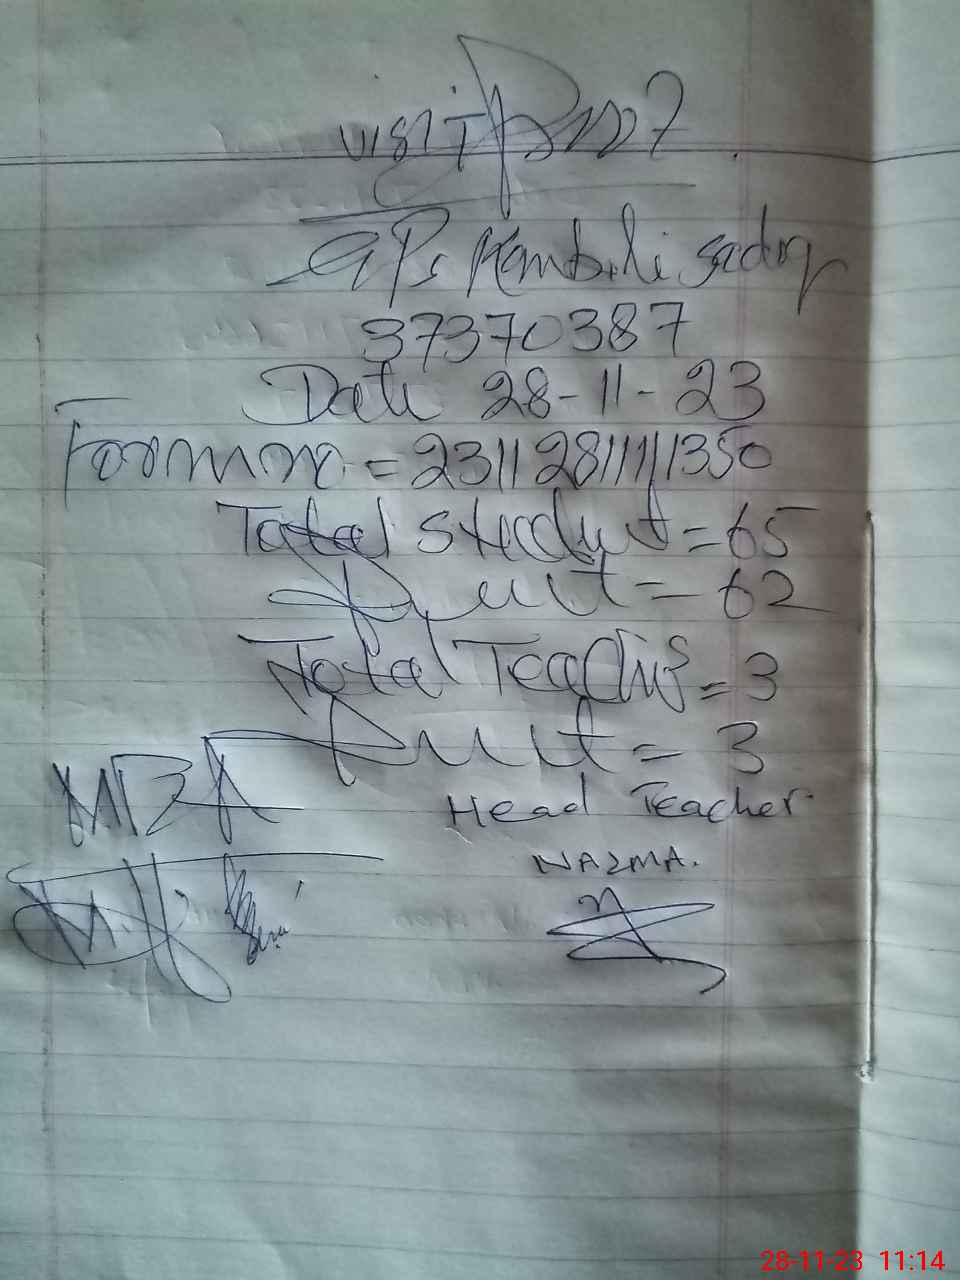 Visit
GPS Kamboli Sadiq
37370387
Date 28-11-23
Form no = 231128111111350
Total Student = 65
Present = 62
Total Teachers = 3
Present = 3
Head Teacher
NAZMA.
28-11-23 11:14